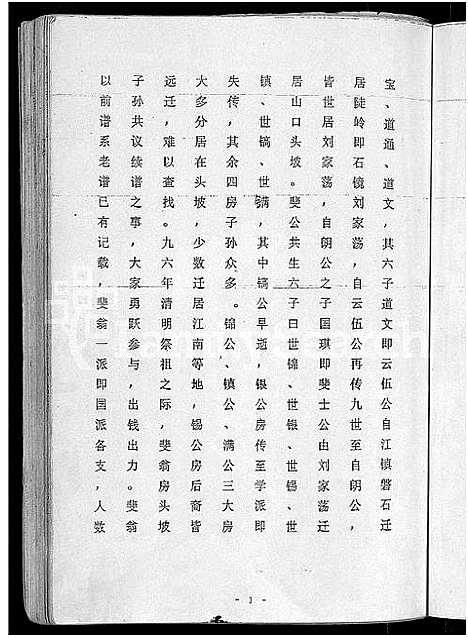 宝、道通、道文，其六子道文即云伍公自江镇磐石迁
居陡岭即石镜刘家荡，自云伍公再传九世至自朗公，
皆世居刘家荡，自朗公之子国琪即斐士公由刘家荡迁
居山口头坡。斐公共生六子曰世锦、世银、世锡、世
镇、世镐、世满，其中镐公早逝，银公房传至学派即
失传，其余四房子孙众多。锦公、镇公、满公三大房
大多分居在头坡，少数迁居江南等地，锡公房后裔皆
远迁，难以查找。九六年清明祭祖之际，斐翁房头坡
子孙共议续谱之事，大家勇跃参与，出钱出力。斐翁
以前谱系老谱已有记载，斐翁一派即国派各支，人数
- 1 -